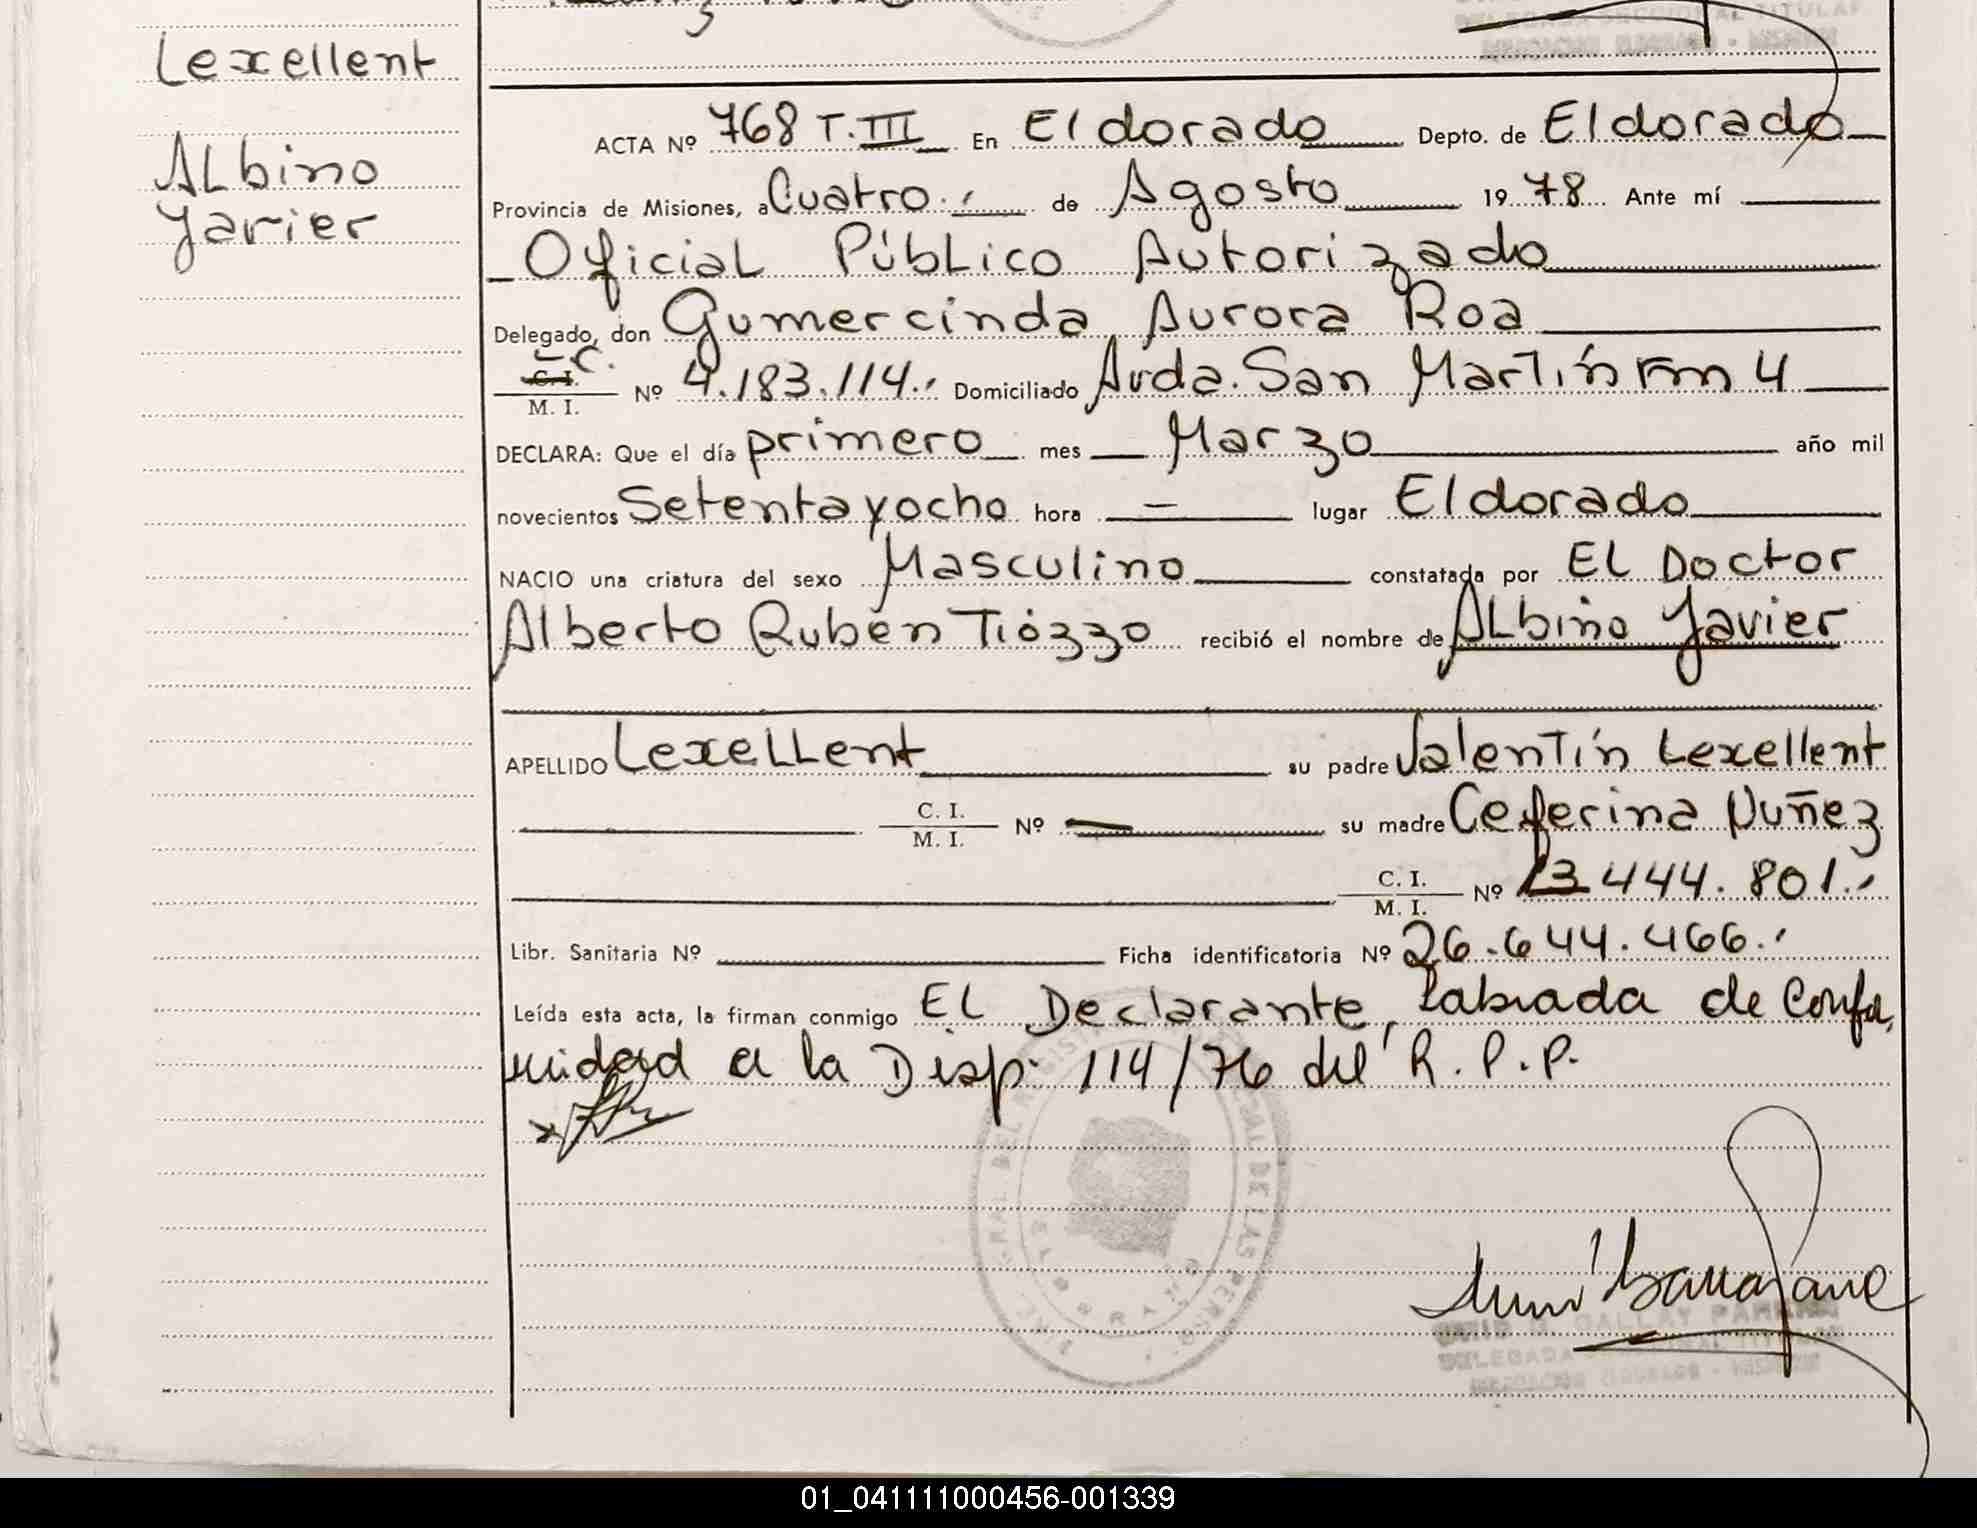 Lexellent
Albino
Javier
ACTA Nº 768 T.III En Eldorado Depto. de Eldorado
Provincia de Misiones, a Cuatro de Agosto 1978 Ante mí
Oficial Público Autorizado
Delegado, don Gumercinda Aurora Roa
L.C.
C. I.
M. I. Nº 4.183.114. Domiciliado Avda. San Martín Km 4
DECLARA: Que el día primero mes Marzo año mil
novecientos Setenta y ocho hora — lugar Eldorado
NACIO una criatura del sexo Masculino constatada por El Doctor
Alberto Rubén Tiózzo recibió el nombre de Albino Javier
APELLIDO Lexellent su padre Valentín Lexellent
C. I.
M. I. Nº — su madre Ceferina Nuñez
C. I.
M. I. Nº 13.444.801.
Libr. Sanitaria Nº Ficha identificatoria Nº 26.644.466.
Leída esta acta, la firman conmigo El Declarante, labrada de Confor
midad a la Disp. 114/76 del R.P.P.
01_041111000456-001339